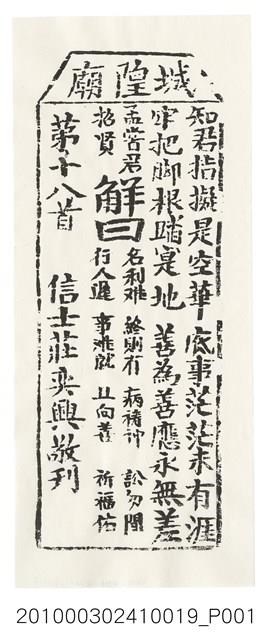 城隍廟
知君指擬是空華 底事茫茫未有涯
牢把脚根踏寔地 善為善應永無差
孟嘗君
招賢
解曰
名利难 終則有 病禱神 訟勿聞
行人遲 事难就 且向善 祈福佑
苐十八首 信士莊奕興敬刊
201000302410019_P001